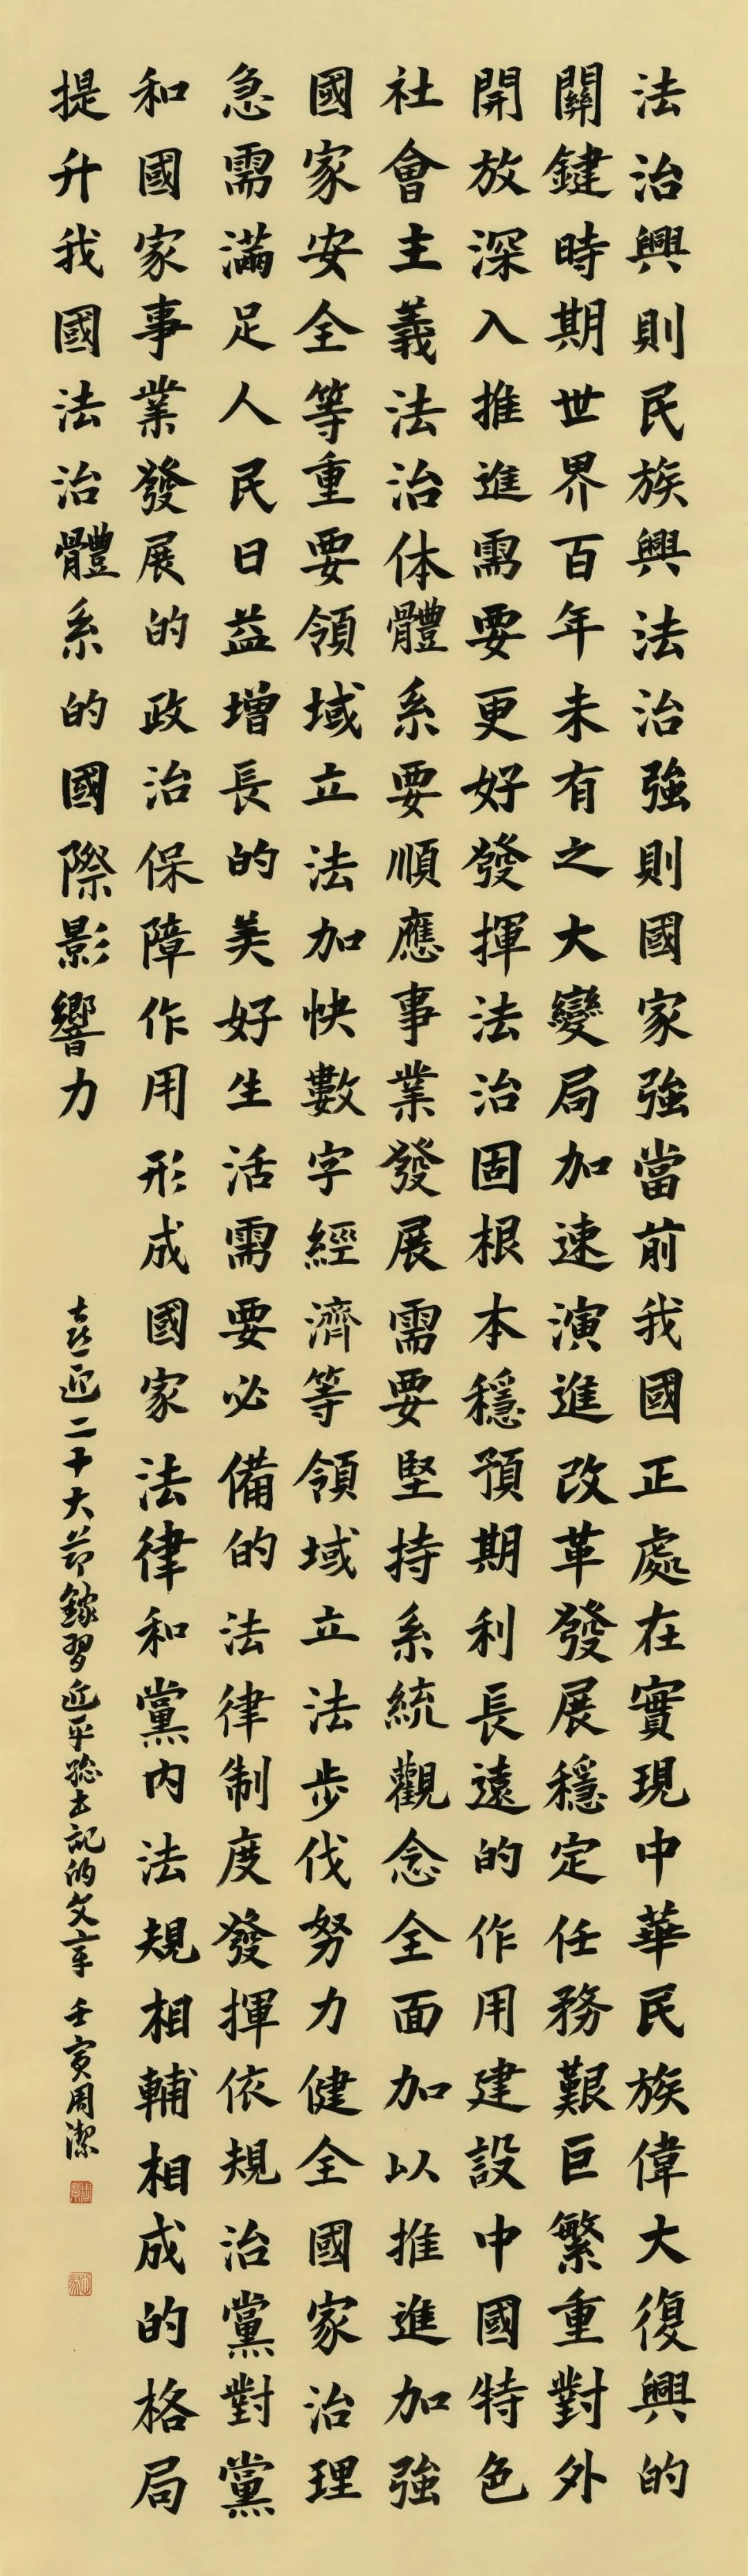 法治興則民族興法治強則國家強當前我國正處在實現中華民族偉大復興的
關鍵時期世界百年未有之大變局加速演進改革發展穩定任務艱巨繁重對外
開放深入推進需要更好發揮法治固根本穩預期利長遠的作用建設中國特色
社會主義法治体體系要順應事業發展需要堅持系統觀念全面加以推進加強
國家安全等重要領域立法加快數字經濟等領域立法步伐努力健全國家治理
急需滿足人民日益增長的美好生活需要必備的法律制度發揮依規治黨對黨
和國家事業發展的政治保障作用形成國家法律和黨內法規相輔相成的格局
提升我國法治體系的國際影響力
喜迎二十大節錄習近平總書記的文章 壬寅周潔